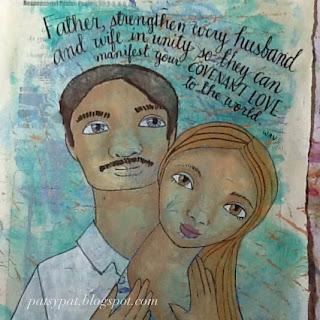 Father, strengthen every husband
and wife in unity so they can
manifest your COVENANT LOVE
to the world
patsypat.blogspot.com